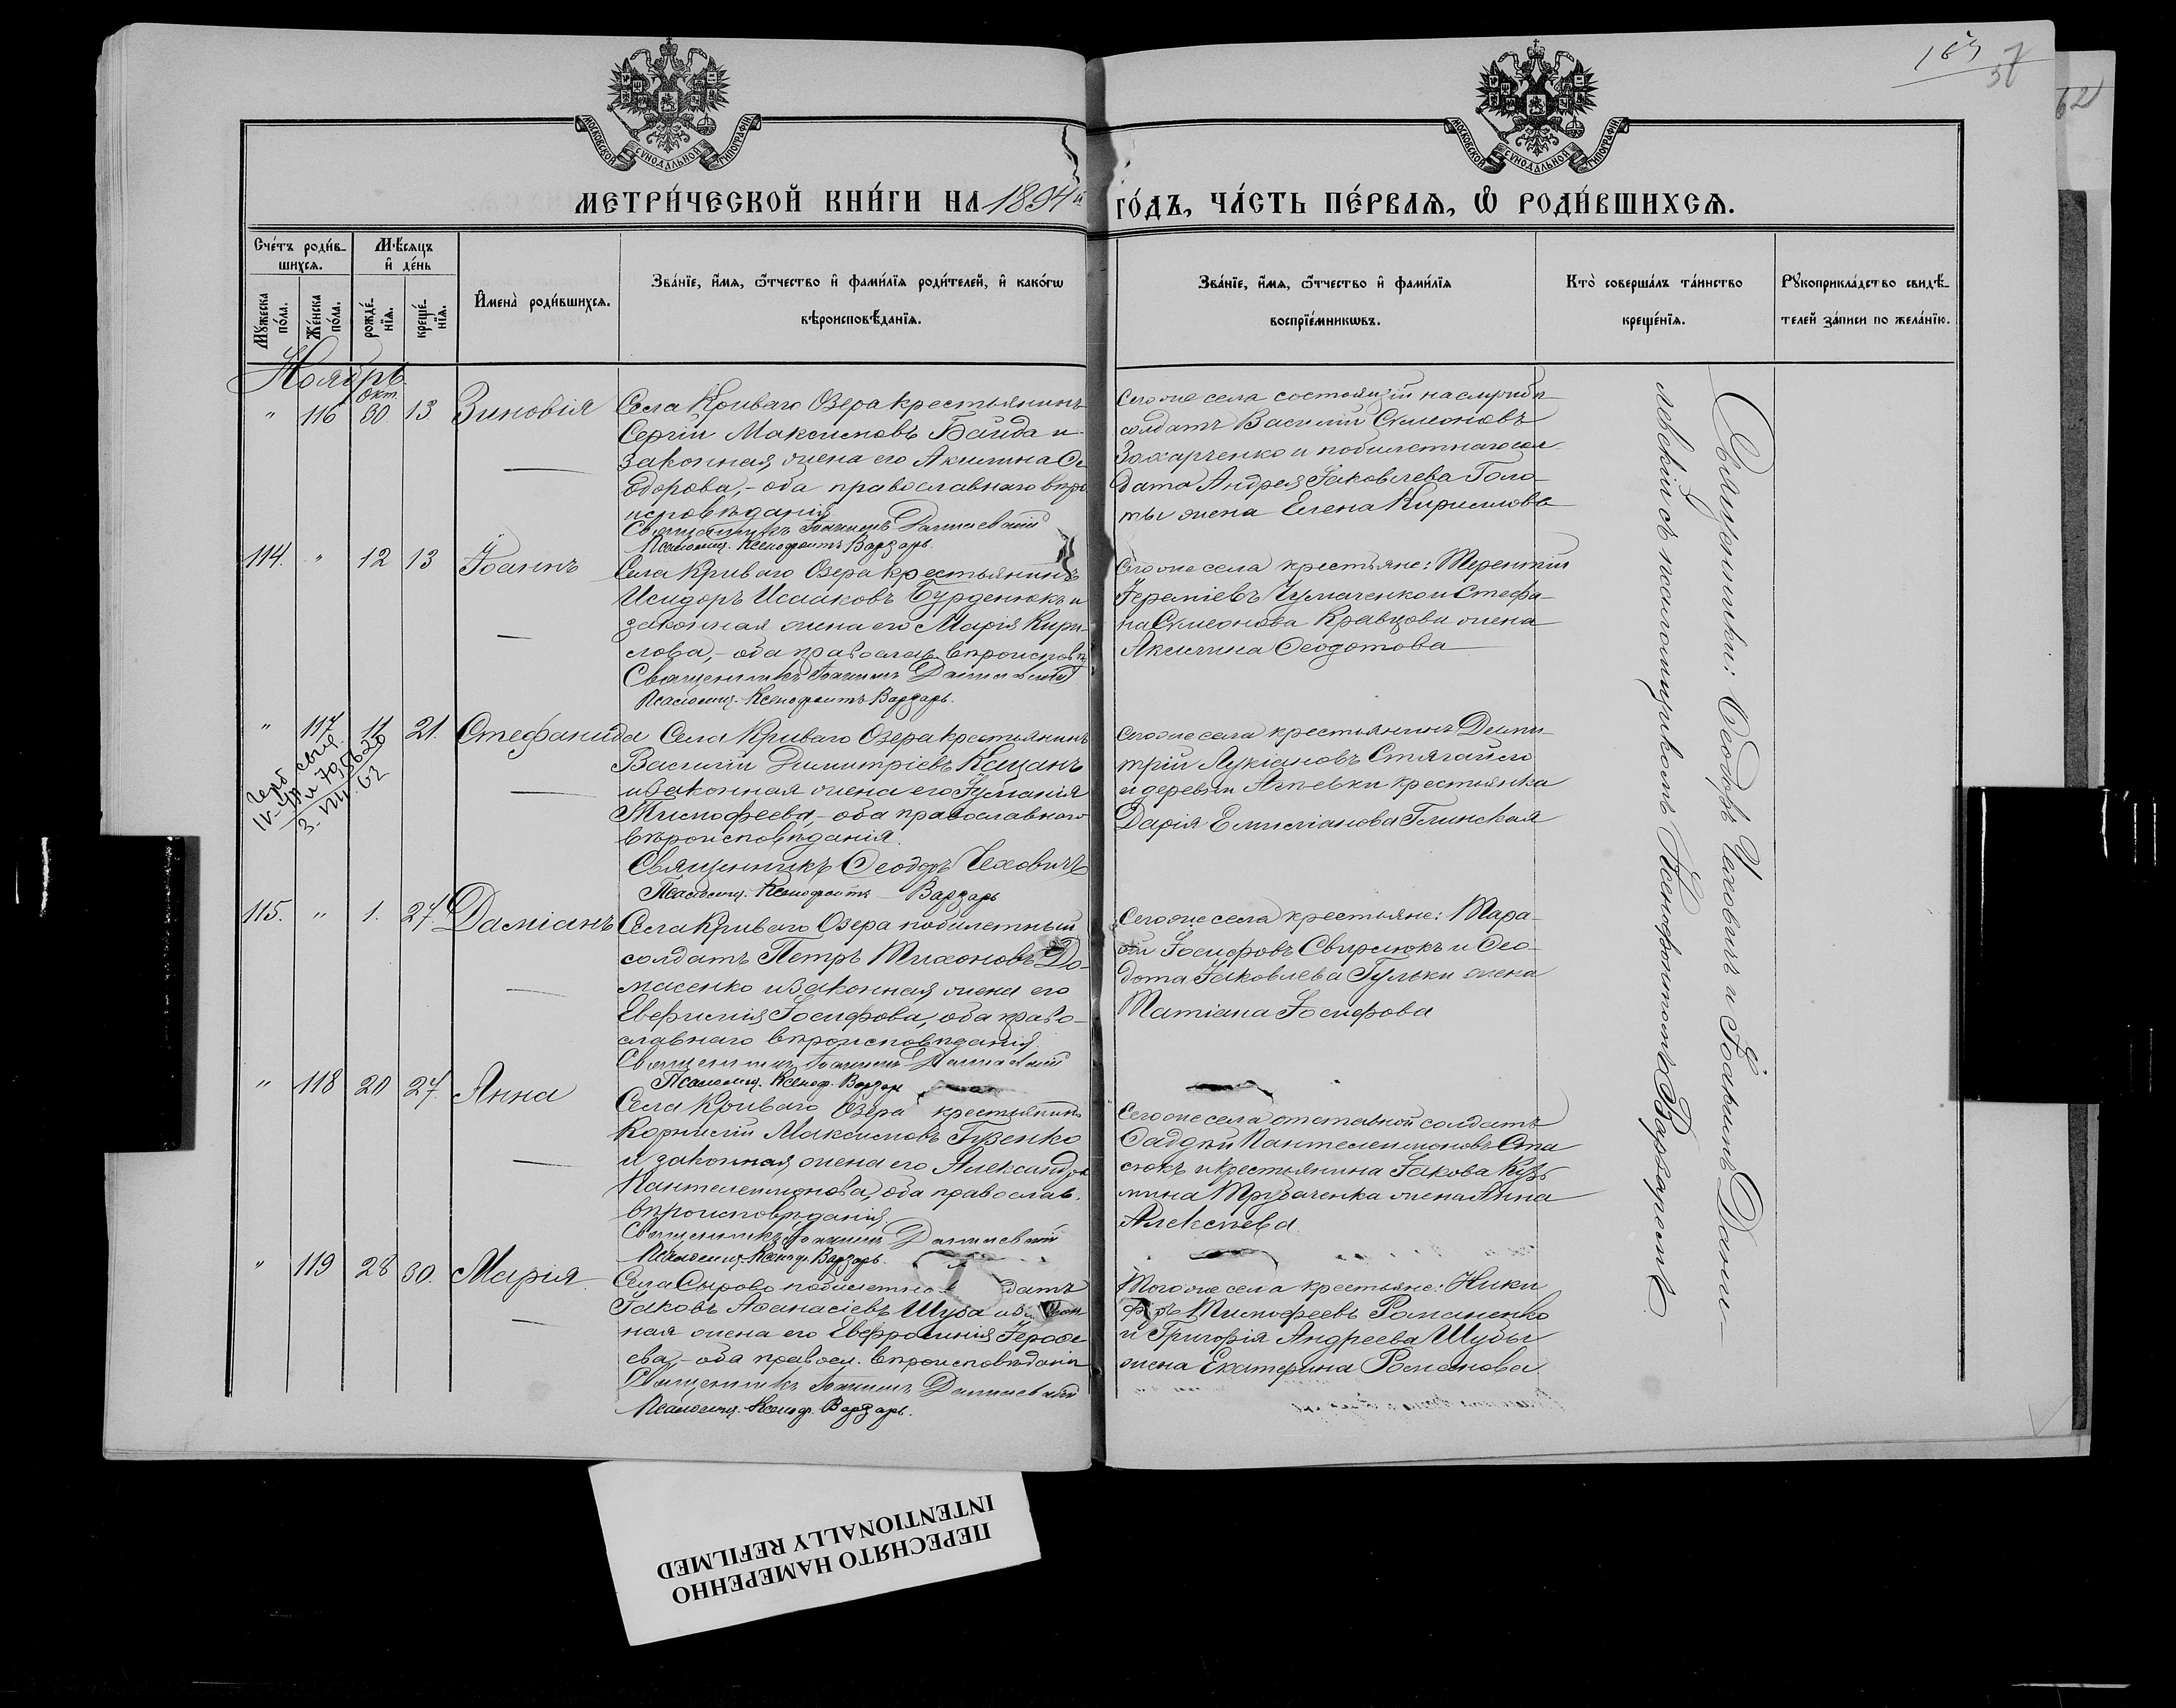 МОСКОВСКОЙ СѴНОДАЛЬНОЙ ТИПОГРАФІИ
МОСКОВСКОЙ СѴНОДАЛЬНОЙ ТИПОГРАФІИ
МЕТРИ́ЧЕСКОЙ КНИ́ГИ НА 1894й ГО́ДЪ, ЧА́СТЬ ПЕ́РВАѦ, Ѽ РОДИ́ВШИХСѦ.
Сче́тъ роди́в-
шихсѧ.
Мѣ́сѧцъ
и҆ де́нь
Мꙋ́жеска
по́ла.
Же́нска
по́ла.
рожде́-
нїѧ.
креще́-
нїѧ.
И҆мена̀ роди́вшихсѧ.
Зва́нїе, и҆́мѧ, ѻ҆́тчество и҆ фами́лїѧ роди́телей, и҆ како́гѡ
вѣроисповѣ́данїѧ.
Зва́нїе, и҆́мѧ, ѻ҆́тчество и҆ фами́лїѧ
воспрїе́мникѡвъ.
Кто̀ соверша́лъ та́инство
креще́нїѧ.
Рꙋкоприкла́дство свидѣ́-
телей за́писи по жела́нїю.
Ноябрь
" 116 Окт. 30 13 Зиновія
Села Криваго Озера крестьянинъ
Сергій Максимовъ Байда и
законная жена его Акилина Ѳе
одорова,- оба православнаго вѣро
исповѣданія
Священникъ Іоакимъ Данилевскій
Псаломщ. Ксенофонтъ Варзарь.
Сего же села состоящій
солдатъ Василій Симеоновъ
Захарченко и побилетнаго сол-
дата Андрея Іаковлева Голо-
ты жена Елена Кириллова
114. " 12 13 Іоаннъ
Села Криваго Озера крестьянинъ
Исидоръ Исааковъ Бурденюкъ и
законная жена его Марія Кири-
лова,- оба православ. вѣроисповѣд
Священникъ Іоакимъ Данилевскій
Псаломщ. Ксенофонтъ Варзарь.
Сего же села крестьяне: Терентій
Іереміевъ Чумаченко и Стефа-
на Симеонова Кравцова жена
Акилина Ѳеодотова
" 117 11 21. Стефанида
Села Криваго Озера крестьянинъ
Василій Димитріевъ Кацанъ
и законная жена его Іуліанія
Тимофеева,- оба православнаго
вѣроисповѣданія.
Священникъ Ѳеодоръ Чеховичъ
Псаломщ. Ксенофонтъ Варзарь
Сего же села крестьянинъ Дими-
трій Лукіановъ Стягайло
и деревни крестьянка
Дарія Емиліанова Глинская
115. " 1. 27. Даміанъ
Села Криваго Озера побилетный
солдатъ Петръ Тихоновъ До-
масенко и законная жена его
Евфимія Іосифова, оба право-
славнаго вѣроисповѣданія.
Священникъ Іоакимъ Данилевскій
Псаломщ. Ксеноф. Варзарь
Сего же села крестьяне: Тара-
сій Іосифовъ Свирнюкъ и Ѳео-
дота Іаковлева Гульки жена
Татіана Іосифова
" 118 20 27. Анна
Села Криваго Озера крестьянинъ
Корнилій Максимовъ Гузенко
и законная жена его Александра
Пантелеимонова, оба православ.
вѣроисповѣданія
Священникъ Іоакимъ Данилевскій
Псаломщ. Ксеноф. Варзарь.
Сего же села отставной солдатъ
Ѳаддей Пантелеимоновъ Ста
сюкъ и крестьянина Іакова Кузь
мина Трубаченка жена Анна
Алексѣева.
" 119 28 30. Марія
Села Сырово побилетно датъ
Іаковъ Аѳанасіевъ Шуба и закон
ная жена его Евфросинія Іероѳе
ева,- оба правосл. вѣроисповѣданія
Священникъ Іоакимъ Данилевскій
Псаломщ. Ксеноф. Варзарь.
Того же села крестьяне: Ники
форъ Тимофеевъ Романенко
и Григорія Андреева Шубы
жена Екатерина Романова.
Священники: Ѳеодоръ Чеховичъ и Іоакимъ Дани-
левскій съ псаломщикомъ Ксенофонтомъ Варзаремъ.
62
ПЕРЕСНЯТО НАМЕРЕННО
INTENTIONALLY REFILMED